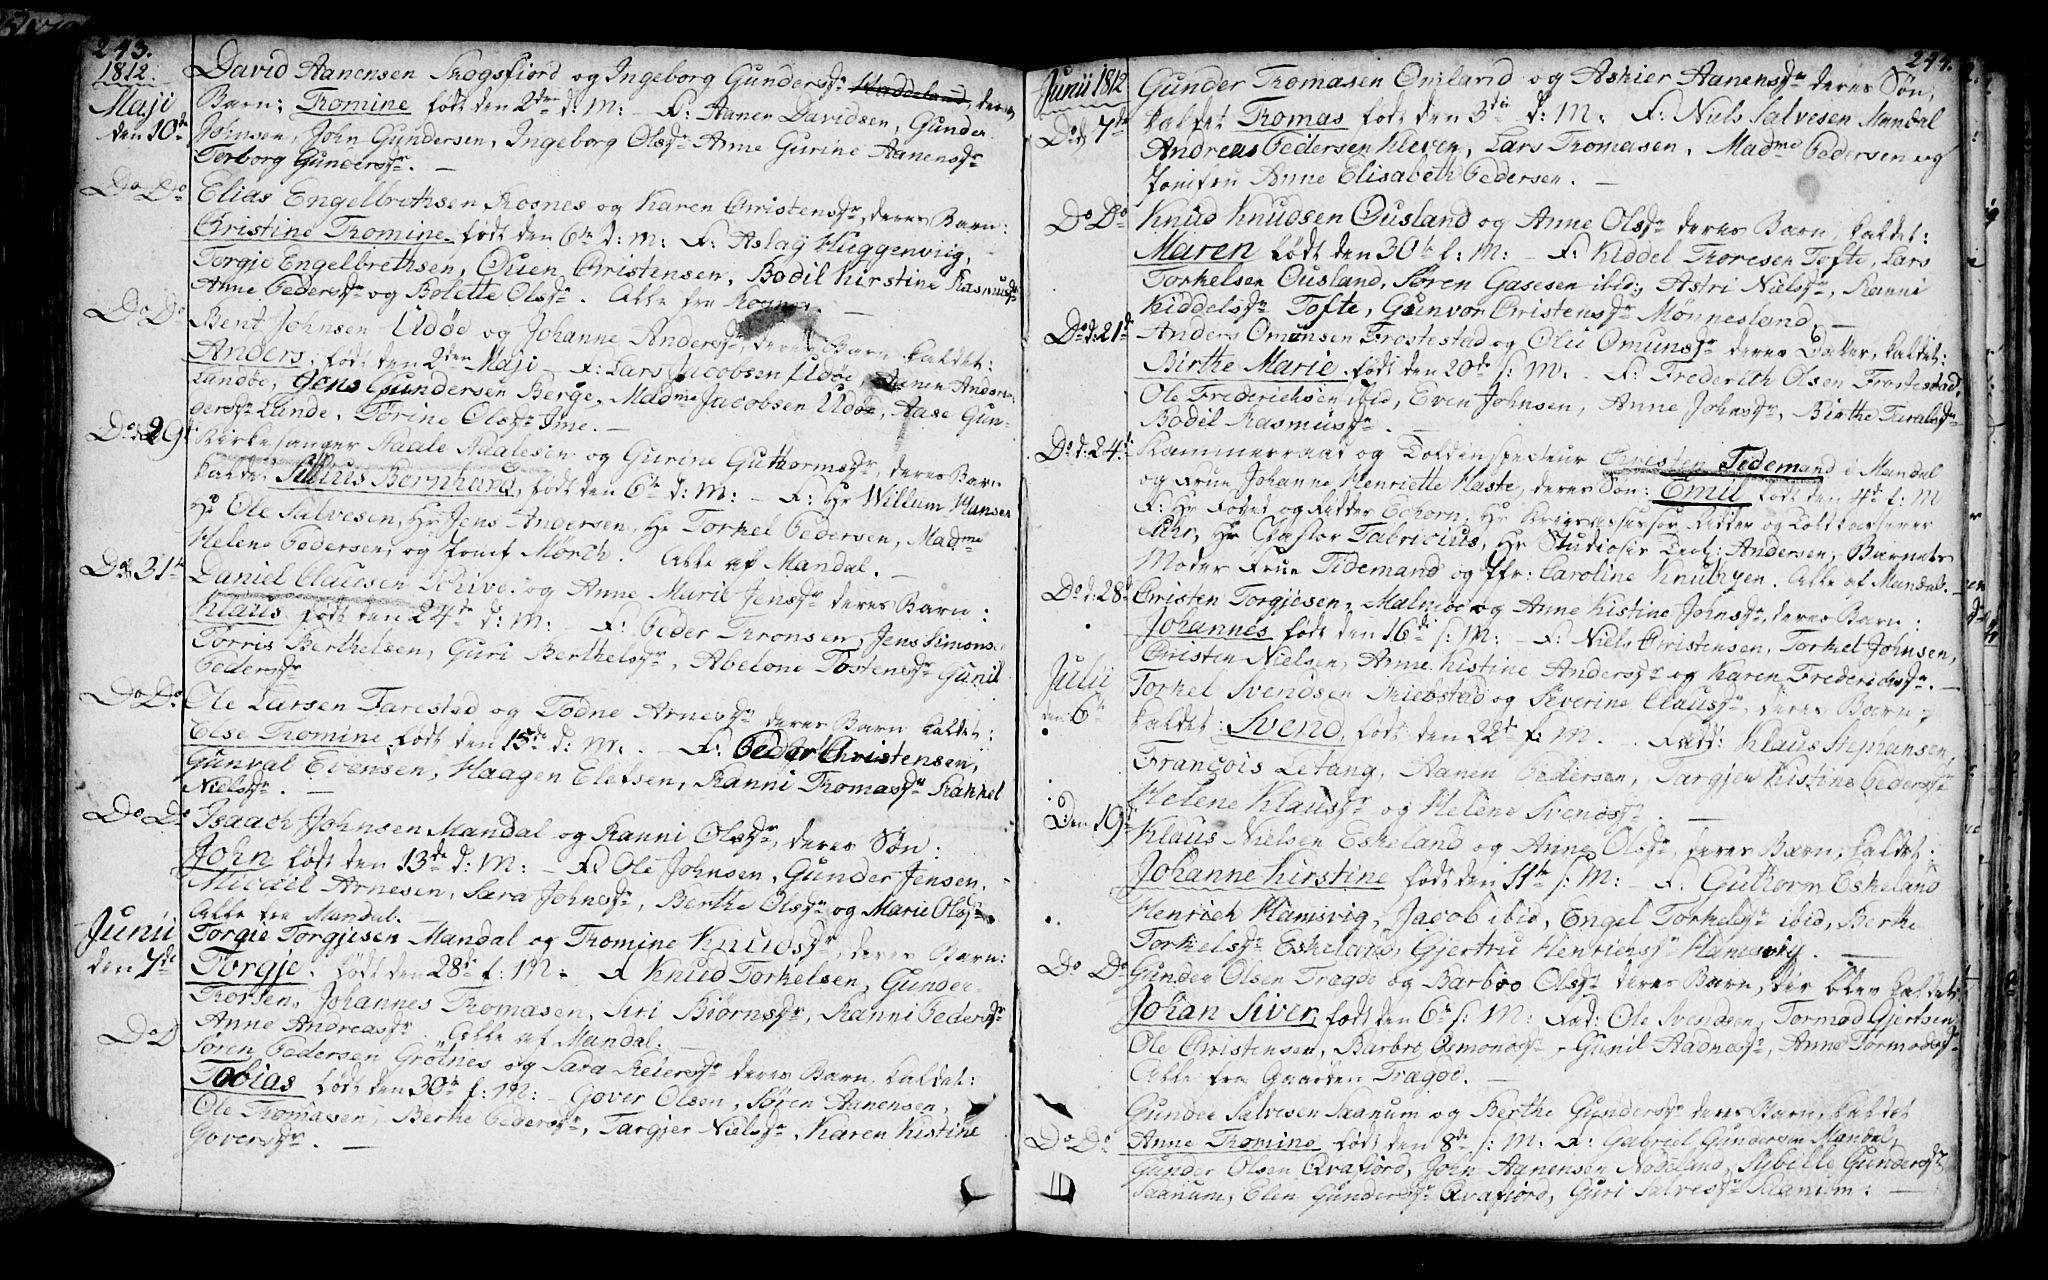 243.
1812.
Maji
den 10de
David Aanensen Skogsfiord og Ingeborg Gundersdr Haddeland, deres
Barn: Tromine født den 2den d: M: - F: Aanen Davidsen, Gunder
Johnsen, John Gundersen, Ingeborg Olsdr Anne Gurine Aanensdr
Torborg Gundersdr. -
Do Do
Elias Engelbrethsen Rosnes og Karen Christensdr, deres Barn:
Christine Tromine. født den 6te d: M: F: Aslag Huggenviig,
Torgje Engelbrethsen, Ouen Christensen, Bodil Kirstine Rasmusdr
Anne Pedersdr og Bolette Olsdr. Alle fra Rosnes. -
Do Do
Bent Johnsen Udøe og Johanne Andersdr, deres Barn kaldet:
Anders. født den 2den Maji - F: Lars Jacobsen Udøe, Aanen Anders
Landøe, Jens Gundersen Berge, Madme Jacobsen Udøe, Aase Gun-
gersdr Lunde, Tørine Olsdr Ime. -
Do d 29de
Kirkesanger Aadle Aadlesen og Gurine Guthormsdr, deres Barn
kaldet Bernhard, født den 6te d: M: - F: Hr Willum Hansen
Hr Ole Salvesen, Hr Jens Andersen, Hr Torkel Pedersen, Madme
Helene Pedersen, og Jomf Mørch. Alle af Mandal. -
Do d 31te
Daniel Clausen Schive. og Anne Marie Jensdr deres Barn:
Klaus. født den 24de d: M: - F: Peder Tronsen, Jens Simonse
Torris Berthelsen, Guri Berthelsdr, Abelone Tostensdr Gunil
Pedersdr
Do Do
Ole Larsen Farestad og Todne Arnesdr deres Barn kaldet:
Else Tromine født den 15de d: M: - F: Peder Christensen,
Gunval Evensen, Haagen Elefsen, Ranni Thomasdr Rakkel
Nielsdr. -
Do Do
Isaach Johnsen Mandal og Ranni Olsdr, deres Søn:
John født den 13de d: M: - F. Ole Johnsen, Gunder Jensen,
Michel Arnesen, Sara Johnsdr, Berthe Olsdr og Marie Olsdr
Alle fra Mandal. -
Junii
den 7de
Torgie Torgjesen Mandal og Tromine Knudsdr, deres Barn:
Torgje. født den 28de f: M: - F Knud Torkelsen, Gunder
Thorsen, Johannes Thomasen, Siri Biørnsdr, Ranni Pedersdr
Anne Andreasdr. Alle af Mandal. -
Do D
Søren Pedersen Grøtnes og Sara Reiersdr deres Barn, kaldet:
Tobias født den 30te f: M: - Gover Olsen, Søren Aanensen,
Ole Thomasen, Berthe Pedersdr, Targjer Nielsdr, Karen Kistine
Goversdr. -
244.
Junii 1812
Do d 7de
Gunder Thomasen Omland og Askier Aanensdr deres Søn,
kaldet Thomas født den 3die d: M: F: Niels Salvesen Mandal
Andreas Pedersen Kleven, Lars Thomasen, Madme Pedersen og
Jomfru Anne Elisabeth Pedersen. -
Do Do
Knud Knudsen Ousland og Anne Olsdr deres Barn, kaldet:
Maren født den 30te f: M: - F: Kiddel Thoresen Tofte, Lars
Torkelsen Ousland, Søren Gasesen ibid:, Astri Nielsdr, Ranni
Kiddelsdr Tofte, Gunvor Christensdr Mønnesland. -
Do d: 21de
Anders Omunsen Frostestad og Oliv Omunsdr deres Datter, kaldet:
Birthe Marie. født den 20de f: M: - F: Frederich Olsen Frostestad,
Ole Frederichsen ibid, Even Johnsen, Anne Johnsdr, Birthe Taraldsdr
Bodil Rasmusdr. -
Do d: 24de
Kammerraad og Toldinspecteur Christen Tidemand i Mandal
og Frue Johanne Henriette Haste, deres Søn: Emil født den 4de f: M
F: Hr Foged og Ritter Echorn, Hr Krigsassessor Ritter og Toldkasserer
Hr Pastor Fabricius, Hr Studiosus Andersen, Barnets
Moder Frue Tidemand og Jfr: Caroline Knutzen. Alle af Mandal. -
Do d: 28de
Christen Torgjesen, Malmøe og Anne Kistine Johnsdr, deres Barn:
Johannes født den 16de f: M: - F: Niels Christensen, Torkel Johnsen,
Christen Nielsen, Anne Kistine Andersdr og Karen Frederichsdr. -
Julii
den 6te
Torkel Svendsen Skiebstad og Severine Clausdr, deres Barn
kaldet: Svend, født den 22de f: M. Fadd: Klaus Stephansen,
François Letang, Aanen Pedersen, Targjer Kistine Pedersdr
Helene Klausdr og Helene Svendsdr. -
Den 19de
Klaus Nielsen Eskeland og Anne Olsdr, deres Barn, kaldet:
Johanne Kirstine født den 11te f: M: - F: Guthorm Eskeland
Henrich Hamsvig, Jacob ibid, Engel Torkelsdr ibid, Berthe
Torkelsdr Eskeland, Gjertru Henrichsdr Hamsvig. -
Do Do
Gunder Olsen Tragde og Barbro Olsdr deres Barn, der blev kaldet
Johan Siver, født den 6te f: M: Fad: Ole Svendsen, Tormod Gjertsen
Ole Christensen, Barbro Osmondsdr, Gunil Aadnesdr, Anne Tormodsdr
Alle fra Gaarden Tragde. -
Do Do
Gunder Salvesen Saanum og Berthe Gundersdr deres Barn, kaldet
Anne Tromine født den 8de f: M. F: Gabriel Gundersen Mandal,
Gunder Olsen Qvafjord, John Aanensen Nodeland, Sybille Gundersdr
Saanum, Elen Gundersdr Qvafiord, Guri Salvesdr Saanum: -